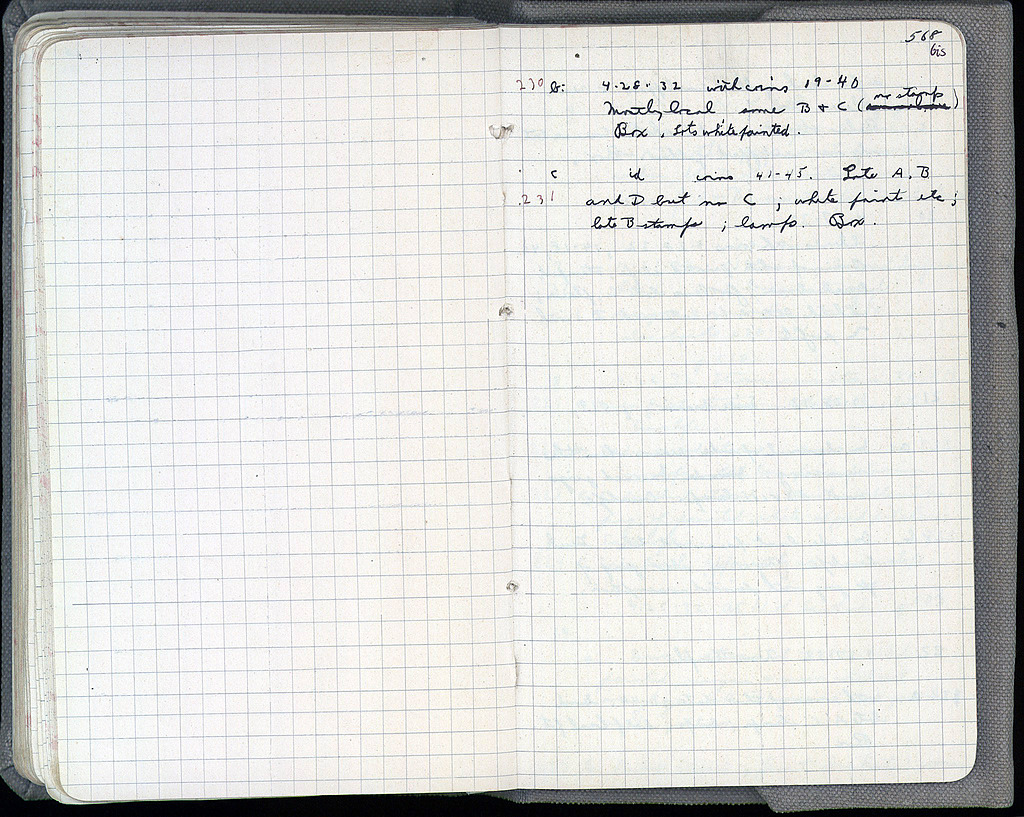 568
bis
230 b: 4.28.32 with coins 19-40
Mostly local some B & C (no stamp)
Box, lots white painted.
c id coins 41-45. Late A, B
231 and D but no C; white paint etc;
late B stamps; lamps. Box.